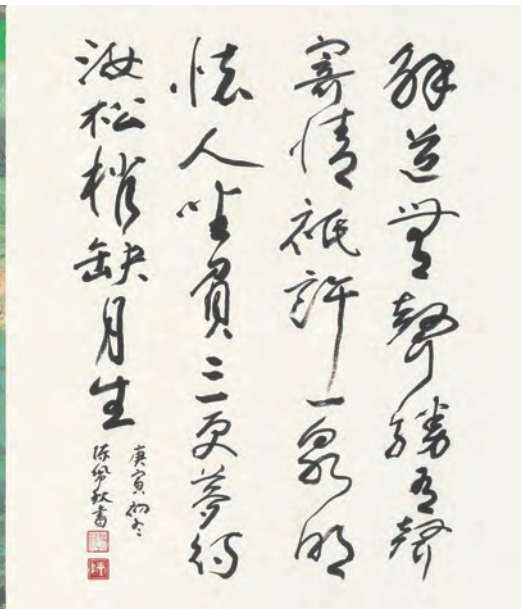 解道無聲勝有聲
寄情祇許一泉明
懷人坐負三更夢待
汝松梢缺月生
庚寅初冬
陳佩秋書